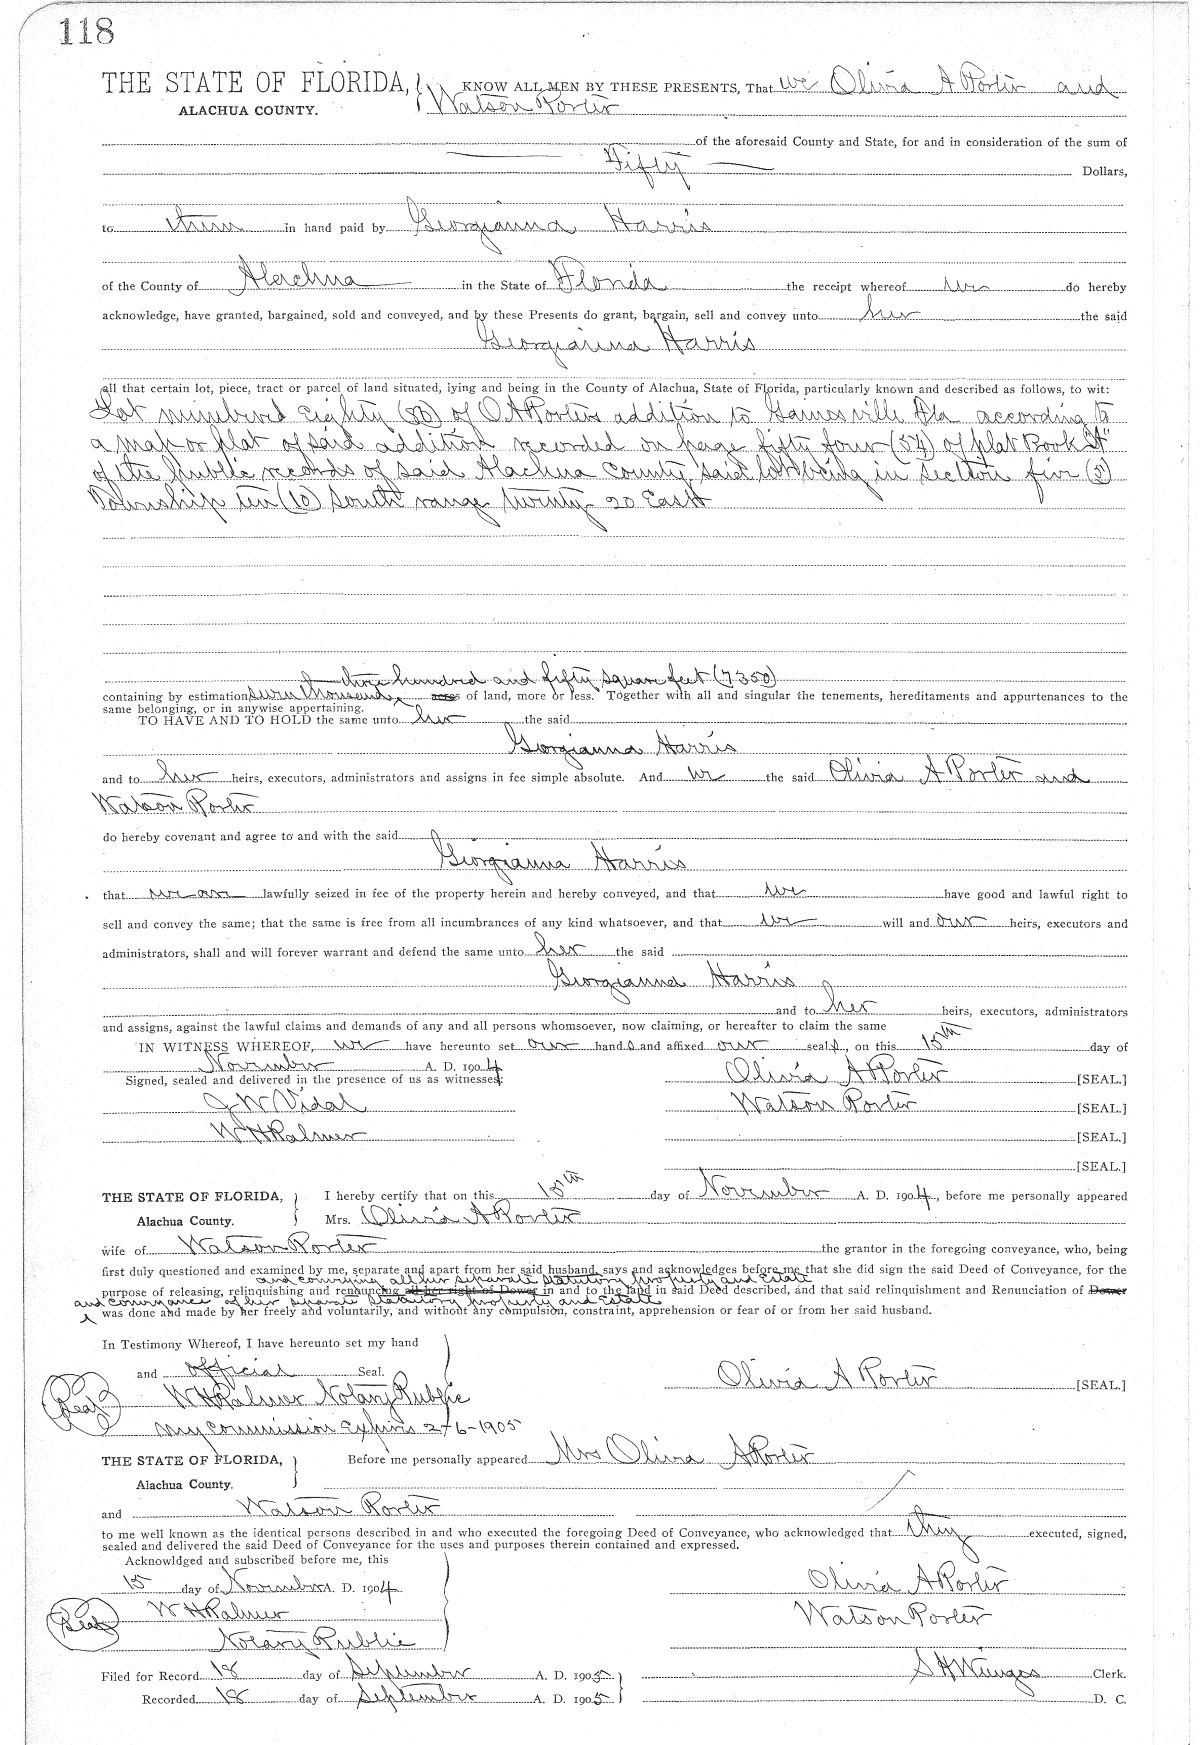 118
THE STATE OF FLORIDA, KNOW ALL MEN BY THESE PRESENTS, That we Olivia A Porter and
ALACHUA COUNTY. Watson Porter
of the aforesaid County and State, for and in consideration of the sum of
Fifty Dollars,
to them in hand paid by Georgianna Harris
of the County of Alachua in the State of Florida the receipt whereof we do hereby
acknowledge, have granted, bargained, sold and conveyed, and by these Presents do grant, bargain, sell and convey unto her the said
Georgianna Harris
all that certain lot, piece, tract or parcel of land situated, lying and being in the County of Alachua, State of Florida, particularly known and described as follows, to wit:
Lot numbered eighty (80) of O. A Porters addition to Gainesville Fla according to
a map or plat of said addition recorded on page fifty four (54) of plat Book "A"
of the public records of said Alachua County said lot being in section five (5)
Township ten (10) South range twenty 20 East
three hundred and fifty square feet (7350)
containing by estimation seven thousand acres of land, more or less. Together with all and singular the tenements, hereditaments and appurtenances to the
same belonging, or in anywise appertaining.
TO HAVE AND TO HOLD the same unto her the said
Georgianna Harris
and to her heirs, executors, administrators and assigns in fee simple absolute. And we the said Olivia A Porter and
Watson Porter
do hereby covenant and agree to and with the said
Georgianna Harris
that we are lawfully seized in fee of the property herein and hereby conveyed, and that we have good and lawful right to
sell and convey the same; that the same is free from all incumbrances of any kind whatsoever, and that we will and our heirs, executors and
administrators, shall and will forever warrant and defend the same unto her the said
Georgianna Harris
and to her heirs, executors, administrators
and assigns, against the lawful claims and demands of any and all persons whomsoever, now claiming, or hereafter to claim the same
IN WITNESS WHEREOF, we have hereunto set our hands and affixed our seals, on this 15th day of
November A. D. 1904
Signed, sealed and delivered in the presence of us as witnesses: Olivia A Porter [SEAL.]
J W Vidal Watson Porter [SEAL.]
W H Palmer [SEAL.]
[SEAL.]
THE STATE OF FLORIDA, I hereby certify that on this 15th day of November A. D. 1904, before me personally appeared
Alachua County. Mrs. Olivia A Porter
wife of Watson Porter the grantor in the foregoing conveyance, who, being
first duly questioned and examined by me, separate and apart from her said husband, says and acknowledges before me that she did sign the said Deed of Conveyance, for the
and conveying all her separate statutory property and estate
purpose of releasing, relinquishing and renouncing all her right of Dower in and to the land in said Deed described, and that said relinquishment and Renunciation of Dower
and conveyance of her separate statutory property and estate
was done and made by her freely and voluntarily, and without any compulsion, constraint, apprehension or fear of or from her said husband.
In Testimony Whereof, I have hereunto set my hand
and official Seal. Olivia A Porter [SEAL.]
Seal W H Palmer Notary Public
My commission expires 2-6-1905
THE STATE OF FLORIDA, Before me personally appeared Mrs Olivia A Porter
Alachua County.
and Watson Porter
to me well known as the identical persons described in and who executed the foregoing Deed of Conveyance, who acknowledged that they executed, signed,
sealed and delivered the said Deed of Conveyance for the uses and purposes therein contained and expressed.
Acknowldged and subscribed before me, this
15 day of November A. D. 1904 Olivia A Porter
Seal W H Palmer Watson Porter
Notary Public
Filed for Record 18 day of September A. D. 1905 S H Wienges Clerk.
Recorded 18 day of September A. D. 1905 D. C.